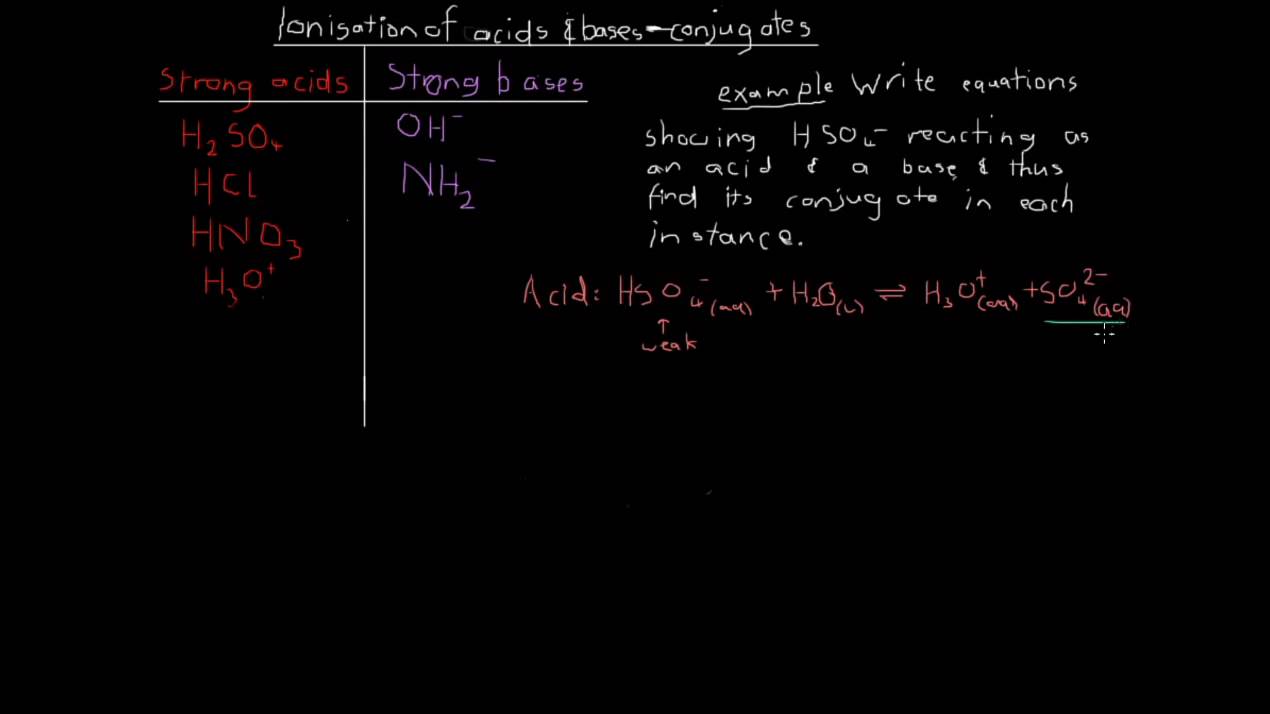 Ionisation of acids & bases-conjugates
Strong acids
H₂SO₄
HCl
HNO₃
H₃O⁺
Strong bases
OH⁻
NH₂⁻
example Write equations
showing HSO₄⁻ reacting as
an acid & a base & thus
find its conjugate in each
instance.
Acid: HSO₄⁻(aq) + H₂O(l) ⇌ H₃O⁺(aq) + SO₄²⁻(aq)
↑
weak